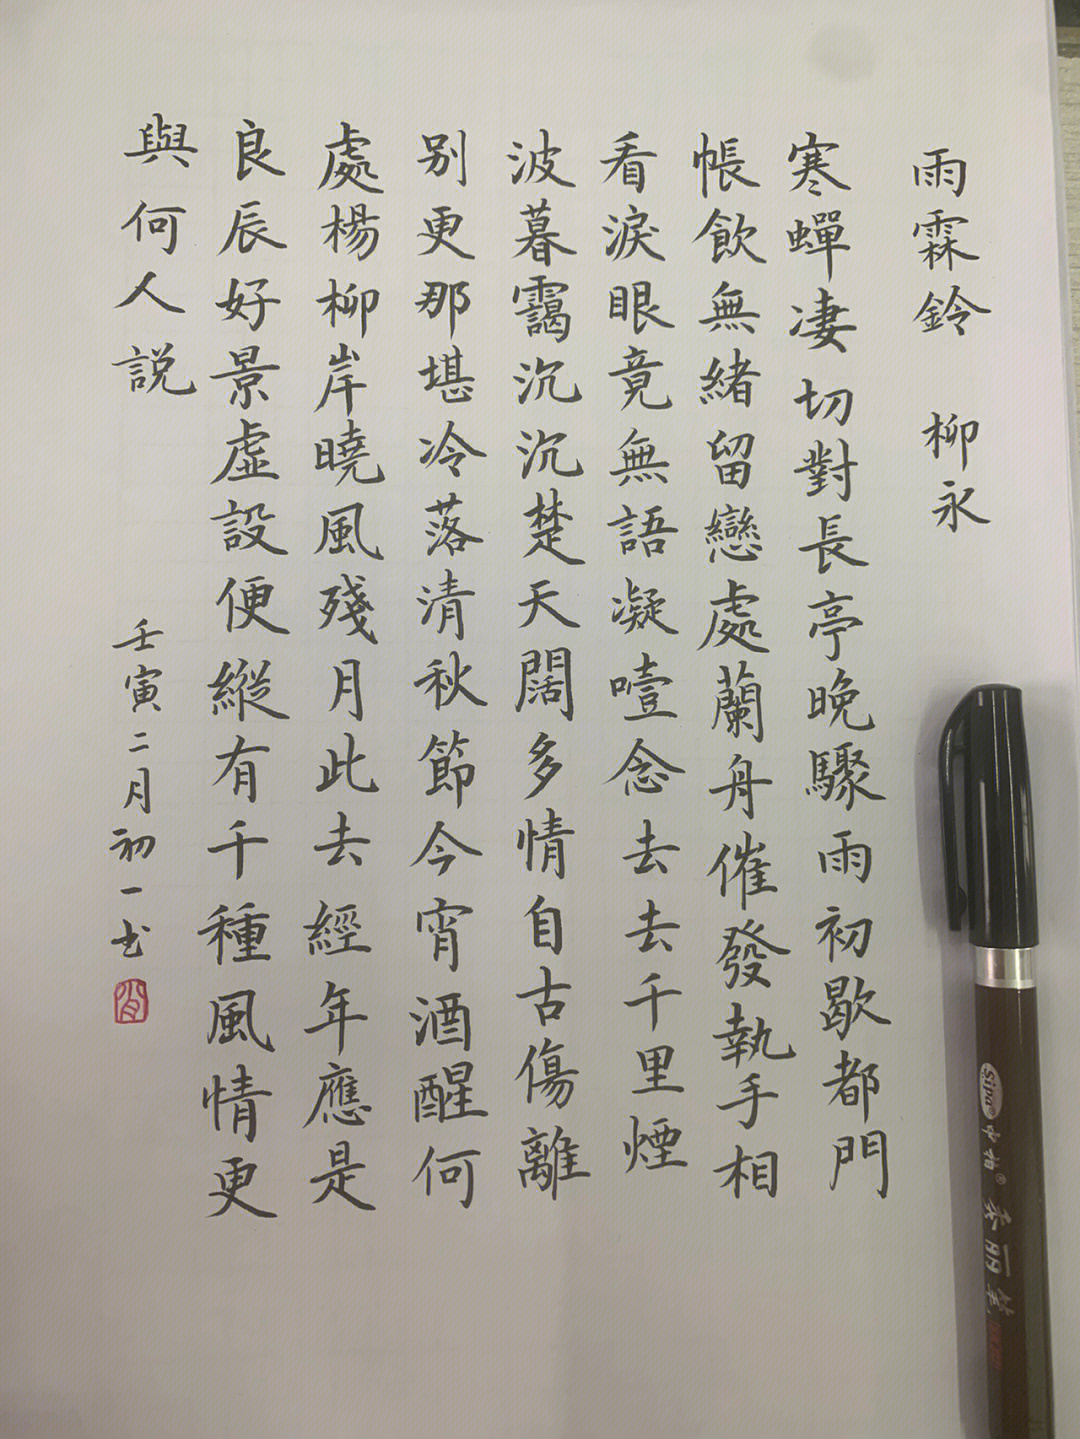 雨霖鈴 柳永
寒蟬凄切對長亭晚驟雨初歇都門
帳飲無緒留戀處蘭舟催發執手相
看淚眼竟無語凝噎念去去千里煙
波暮靄沉沉楚天闊多情自古傷離
别更那堪冷落清秋節今宵酒醒何
處楊柳岸曉風殘月此去經年應是
良辰好景虛設便縱有千種風情更
與何人説
壬寅二月初一书
Sipa®
中柏® 秀丽笔